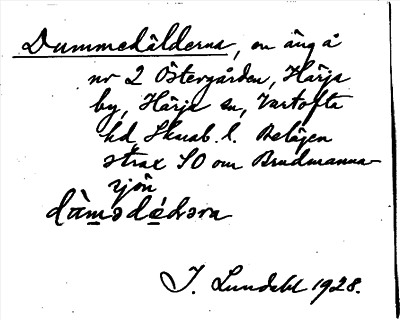 Dummedälderna, en äng å
nr 2 Östergården, Härja
by, Härja sn, Vartofta
hd, Skarab. l. Belägen
strax SO om Brudmanna-
sjön
I. Lundahl 1928.